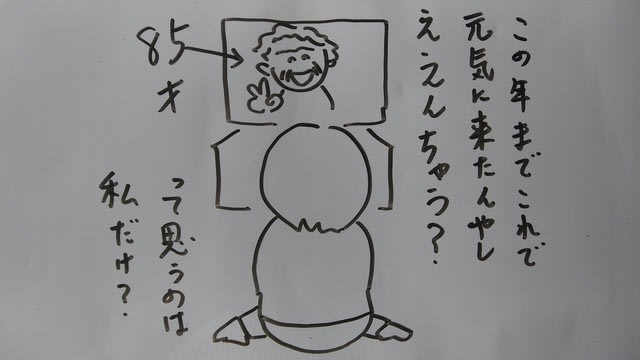 この年までこれで
元気に来たんやし
ええんちゃう?
85才
って思うのは
私だけ?